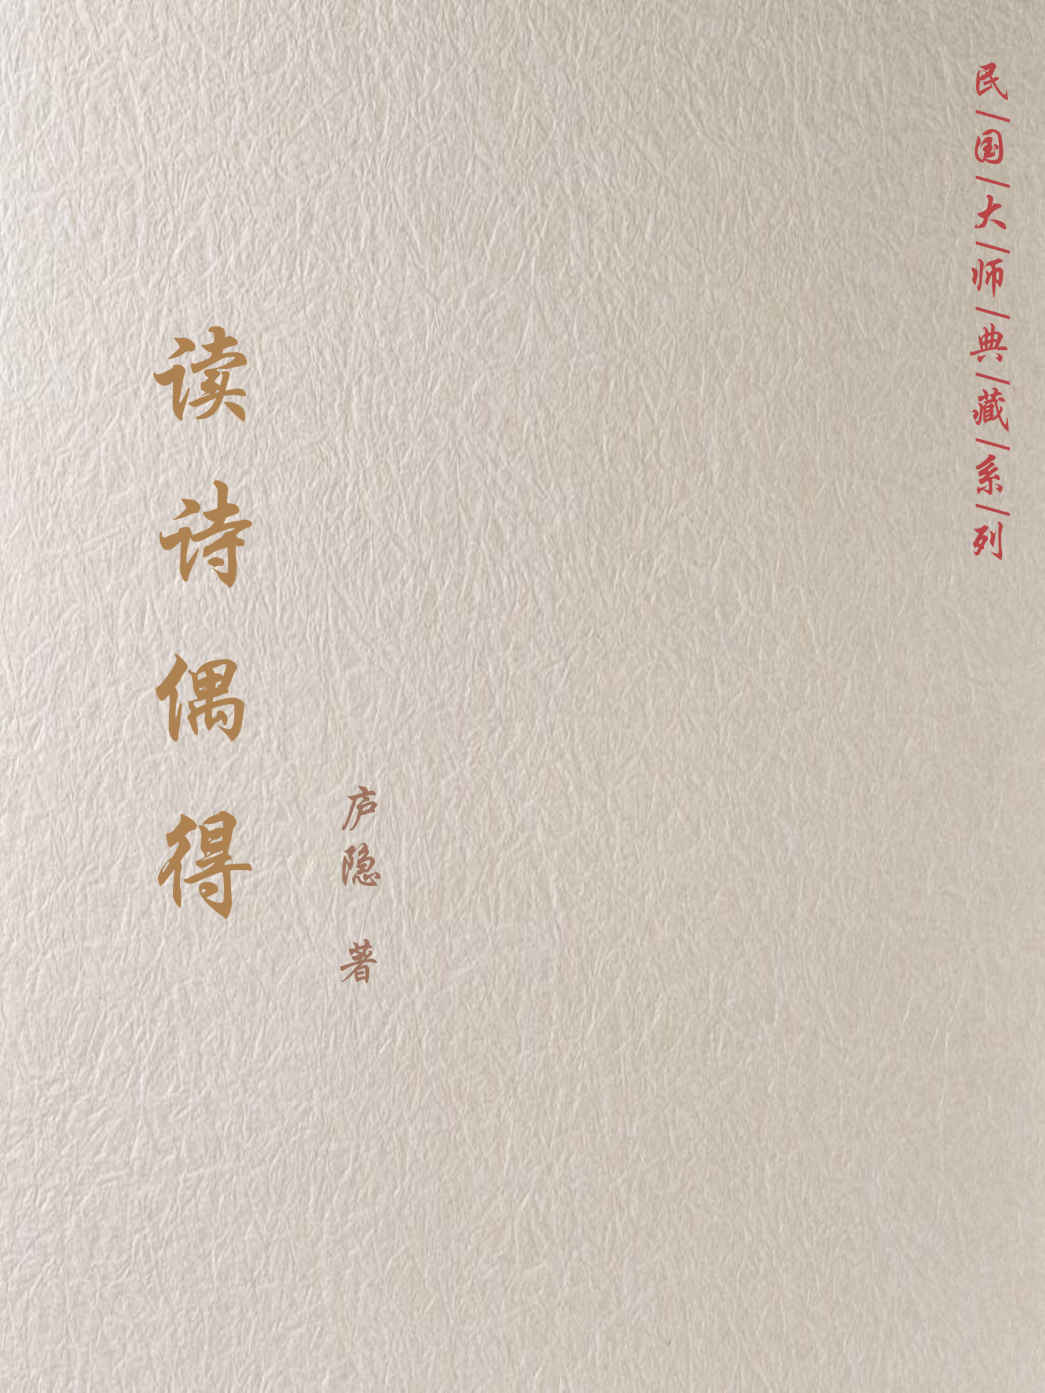 民/国/大/师/典/藏/系/列
读诗偶得
庐隐 著